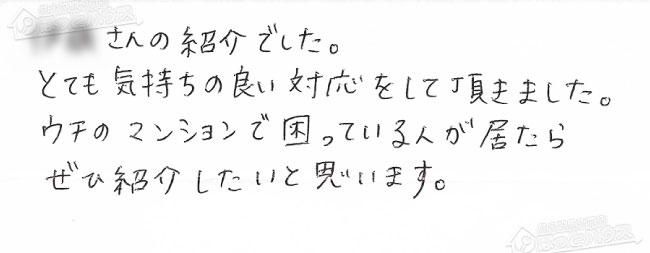 さんの紹介でした。
とても気持ちの良い対応をして頂きました。
ウチのマンションで困っている人が居たら
ぜひ紹介したいと思います。